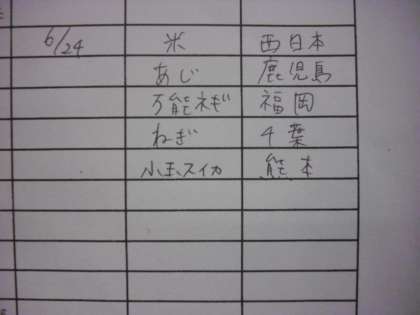 6/24 米 西日本
あじ 鹿児島
万能ネギ 福岡
ねぎ 千葉
小玉スイカ 熊本